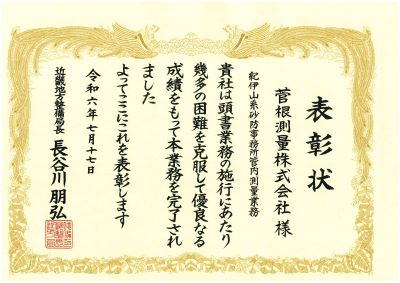 表彰状
菅根測量株式会社 様
紀伊山系砂防事務所管内測量業務
貴社は頭書業務の施行にあたり
幾多の困難を克服して優良なる
成績をもって本業務を完了され
ました
よってここにこれを表彰します
令和六年七月十七日
近畿地方整備局長 長谷川 朋弘